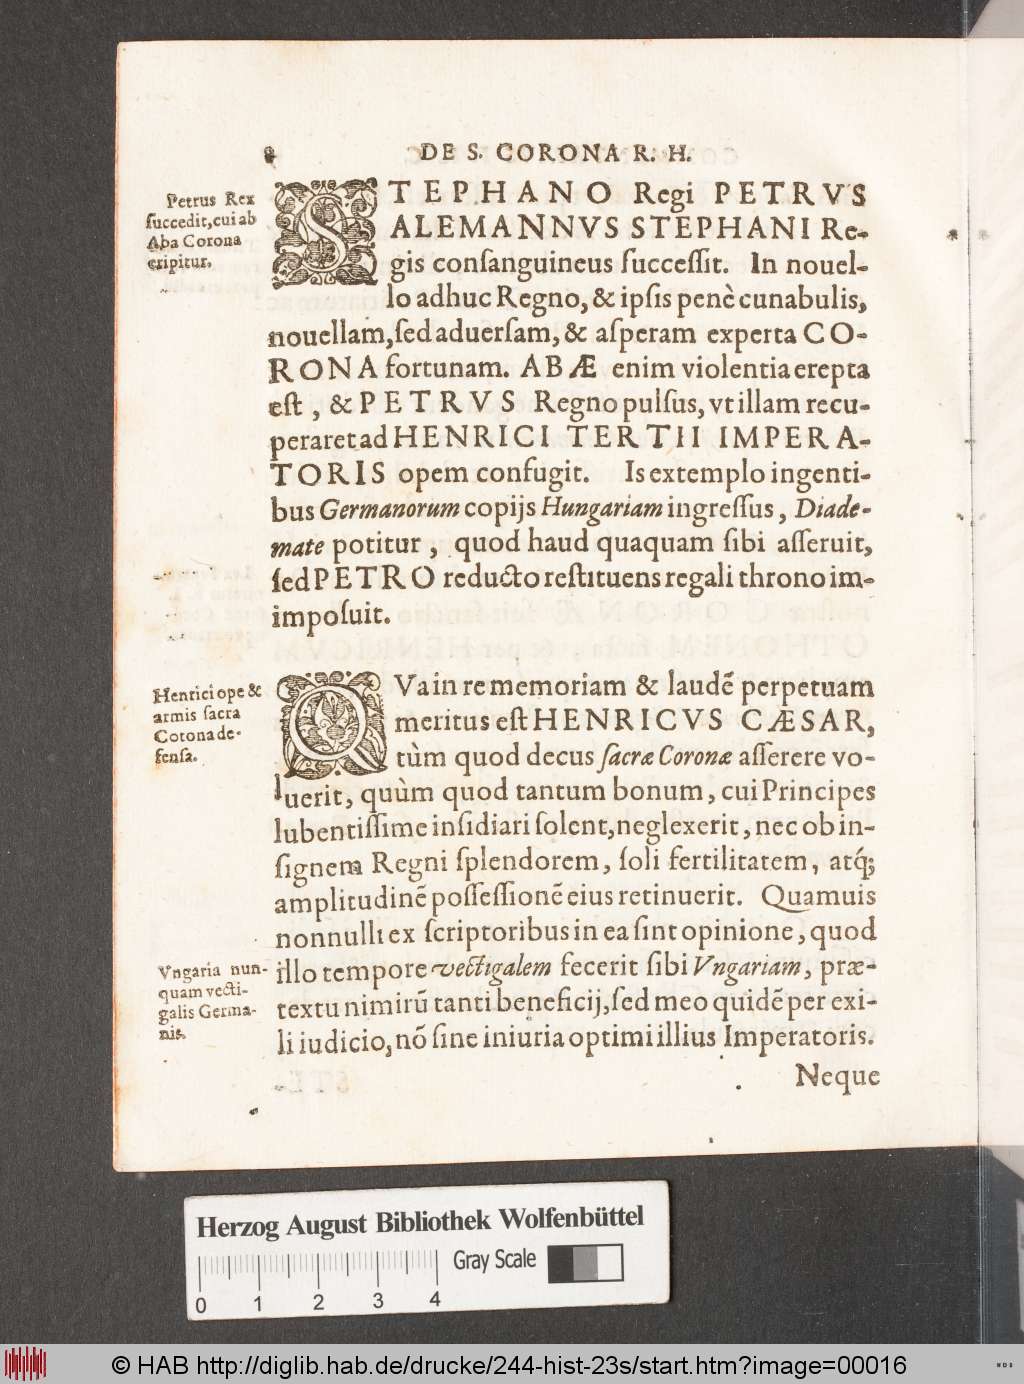 8
DE S. CORONA R. H.
Petrus Rex
ſuccedit, cui ab
Aba Corona
eripitur.
STEPHANO Regi PETRVS
ALEMANNVS STEPHANI Re-
gis conſanguineus ſucceſſit. In nouel-
lo adhuc Regno, & ipſis penè cunabulis,
nouellam, ſed aduerſam, & aſperam experta CO-
RONA fortunam. ABÆ enim violentia erepta
eſt, & PETRVS Regno pulſus, vt illam recu-
peraret ad HENRICI TERTII IMPERA-
TORIS opem confugit. Is extemplo ingenti-
bus Germanorum copijs Hungariam ingreſſus, Diade-
mate potitur, quod haud quaquam ſibi aſſeruit,
ſed PETRO reducto reſtituens regali throno im-
impoſuit.
Henrici ope &
armis ſacra
Corona de-
fenſa.
QVa in re memoriam & laudē perpetuam
meritus eſt HENRICVS CÆSAR,
tùm quod decus ſacræ Coronæ aſſerere vo-
luerit, quùm quod tantum bonum, cui Principes
lubentiſſime inſidiari ſolent, neglexerit, nec ob in-
ſignem Regni ſplendorem, ſoli fertilitatem, atq́;
amplitudinē poſſeſſionē eius retinuerit. Quamuis
nonnulli ex ſcriptoribus in ea ſint opinione, quod
Vngaria nun-
quam vecti-
galis Germa-
nis.
illo tempore vectigalem fecerit ſibi Vngariam, præ-
textu nimirū tanti beneficij, ſed meo quidē per exi-
li iudicio, nō ſine iniuria optimi illius Imperatoris.
Neque
Herzog August Bibliothek Wolfenbüttel
Gray Scale
0 1 2 3 4
© HAB http://diglib.hab.de/drucke/244-hist-23s/start.htm?image=00016